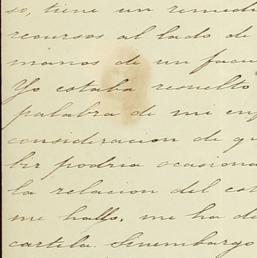 so, tiene un remedi
recursos al lado de
manos de un facu
Yo estaba resuelto
palabra de mi enf
consideracion de qu
bir podria ocasiona
la relacion del est
me hallo, me ha de
cartela. Sinembargo